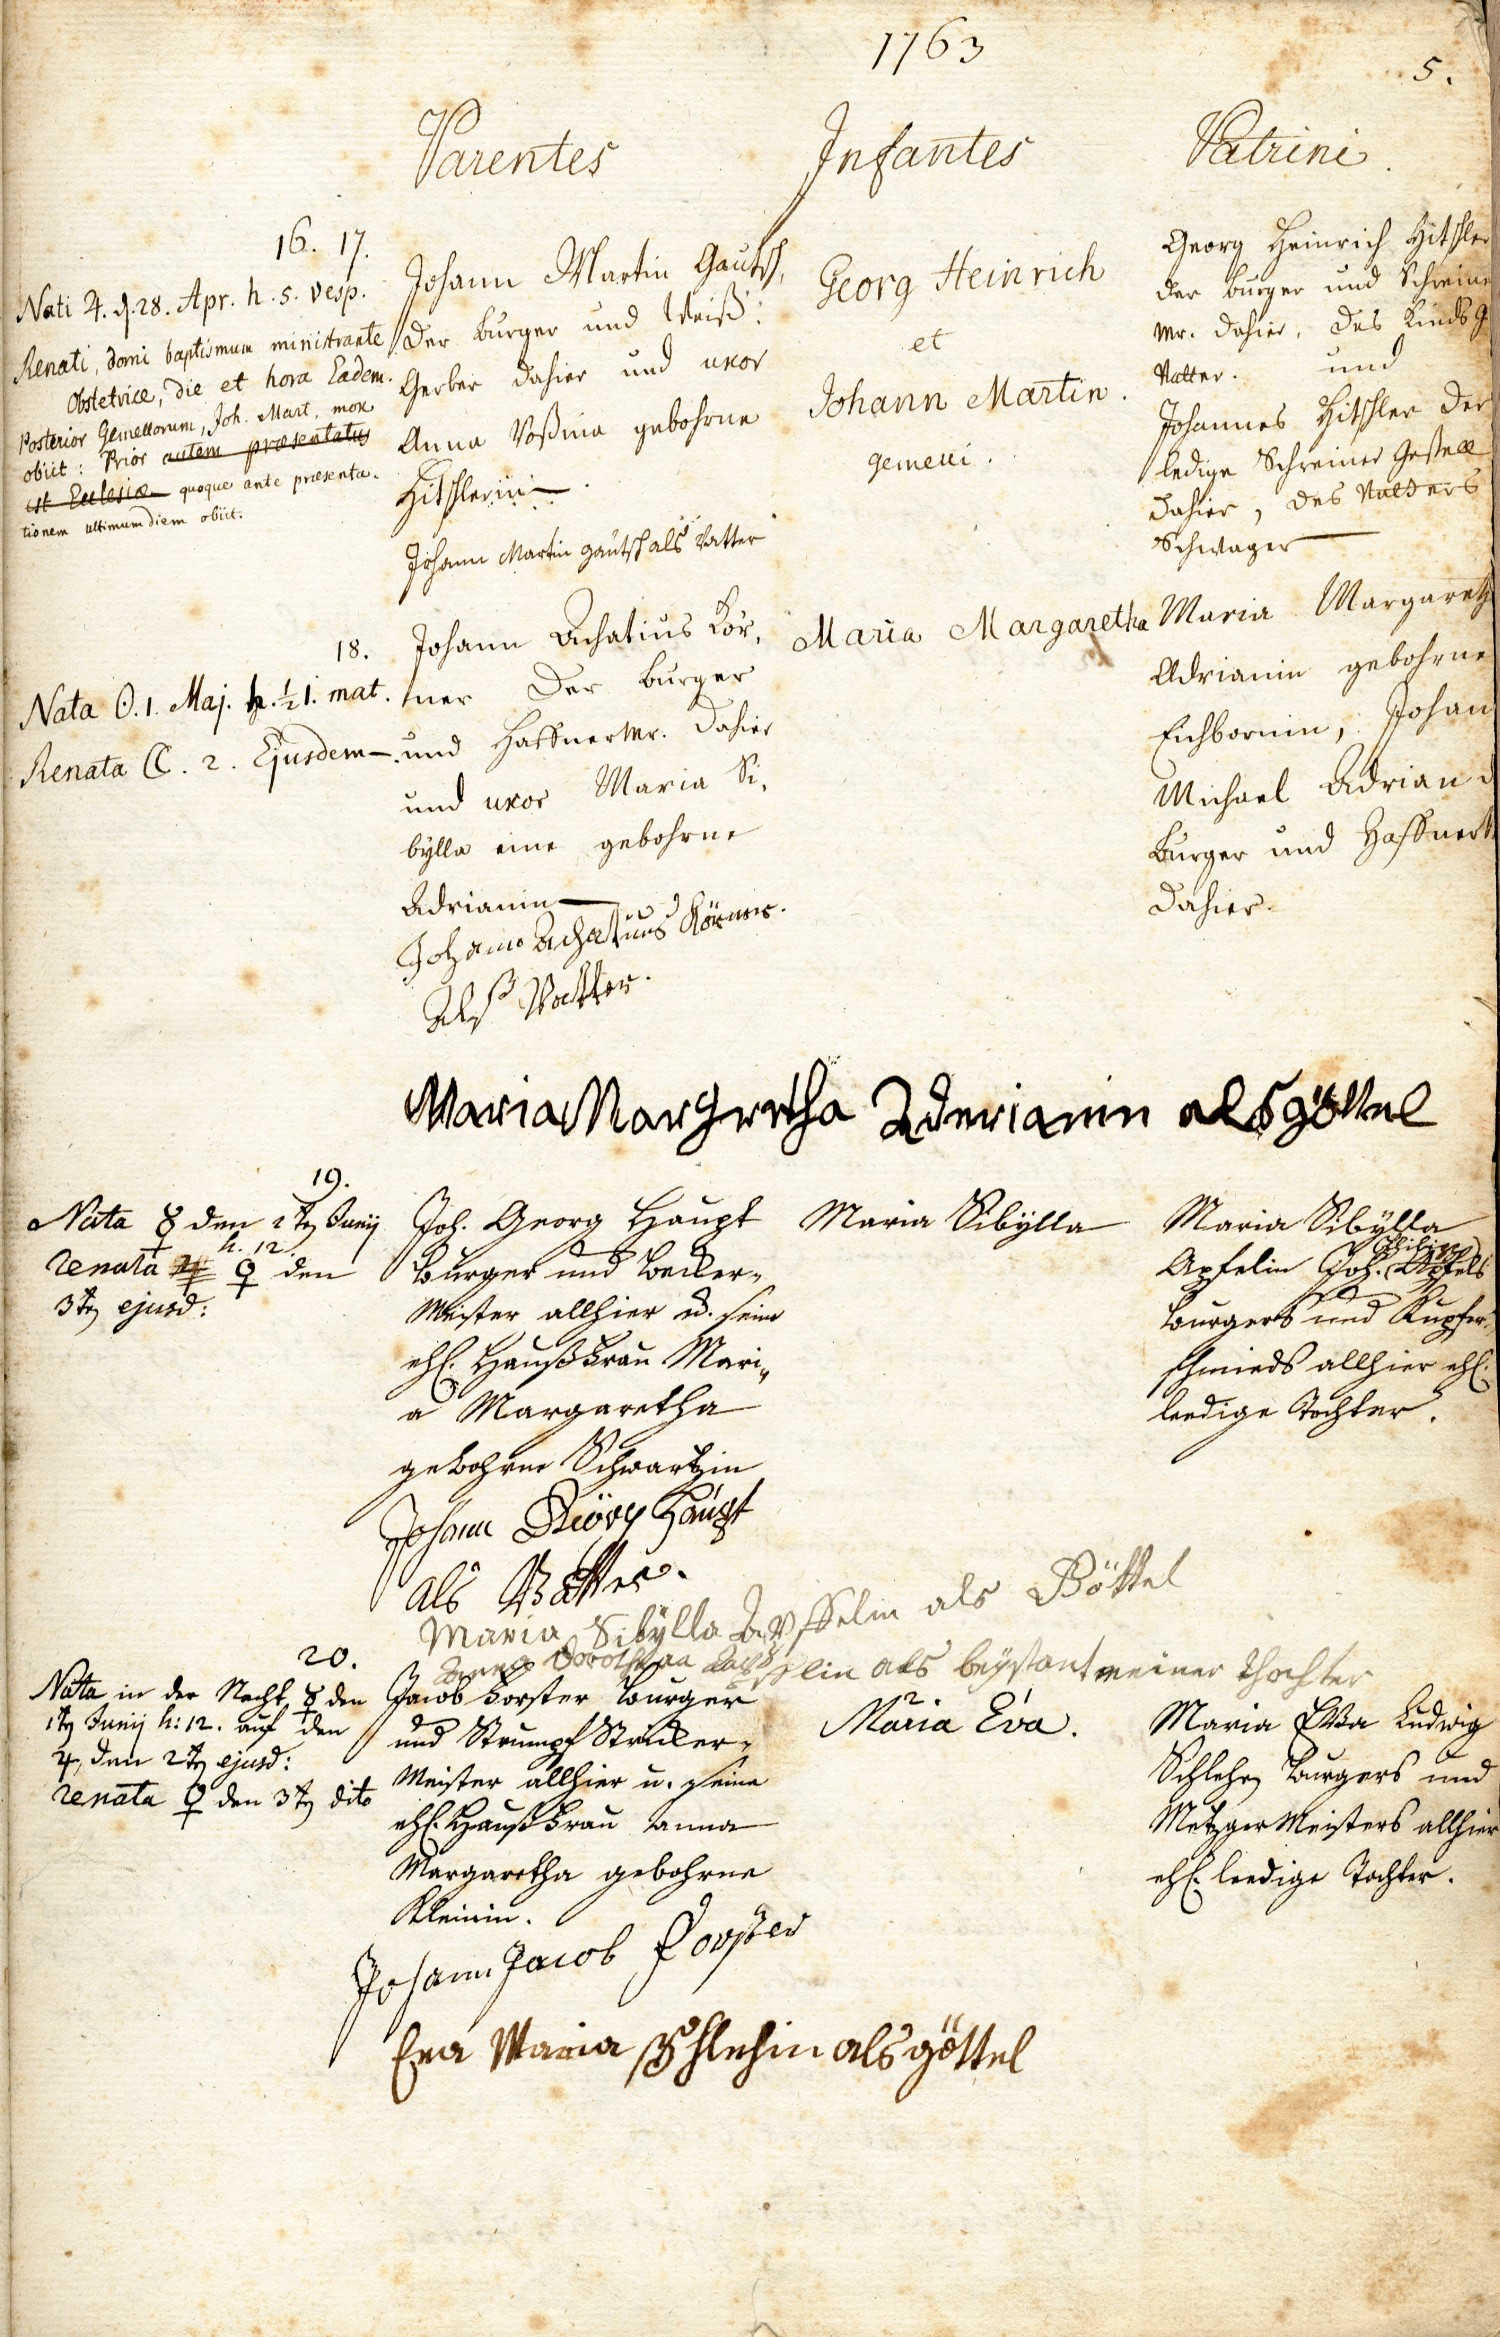 1763
5.
Parentes
Infantes
Patrini
16. 17.
Nati ♃. d. 28. Apr. h. 5. vesp.
Renati, domi baptismum ministrante
Obstetrice, die et hora Eadem.
Posterior Gemellorum, Joh. Mart, mox
obiit: Prior autem præsentatus
est Ecclesiæ quoque ante præsenta-
tionem ultimum diem obiit.
Johann Martin Gautsch,
der burger und Weiß-
Gerber dahier und uxor
Anna Rosina gebohrne
Hitschlerin.
Johann Martin gautsch als Vatter
Georg Heinrich
et
Johann Martin.
gemelli.
Georg Heinrich Hitschler
der burger und Schreiner
Mr. dahier, des Kinds
Vatter. und
Johannes Hitschler der
ledige Schreiner Gesell
dahier, des Vatters
Schwager
18.
Nata ☉. 1. Maj. h. ½ 1. mat.
Renata ☾. 2. Ejusdem.
Johann Achatius Kör,
ner der burger
und Haffner Mr. dahier
und uxor Maria Si,
bÿlla eine gebohrne
Adrianin
Johann Achatius Körner.
Alß Vatter.
Maria Margaretha
Maria Margareth
Adrianin gebohrne
Eichbornin, Johan
Michael Adrian
burger und Haffner
dahier.
Maria Margretha Aderianin als göttel
19.
Nata ☿ den 1ten Junÿ
h. 12.
renata ♃ ♀ den
3ten ejusd:
Joh. Georg Haupt
burger und becker-
Meister allhier u. seine
ehl. Haußfrau Mari-
a Margaretha
gebohrne Schwartzin
Johann Georg Haupt
als Vatter.
Maria Sibÿlla
Maria Sibÿlla
Apfelin Joh. Philipp Apfels
burgers und Kupfer-
schmieds allhier ehl.
leedige Tochter.
Maria Sibÿlla Apffelin als Göttel
Dorothea als beÿstant meiner thochter
20.
Nata in der Nacht, ☿ den
1ten Junÿ h: 12. auf den
♃, den 2ten ejusd:
renata ♀ den 3ten dito
Jacob Forster burger
und Strumpf Stricker-
Meister allhier u. seine
ehl. Haußfrau anna
Margaretha gebohrne
Kleinin.
Johann Jacob Forster
Maria Eva.
2 1
Maria Eva Ludwig
Schlehen burgers und
Metzger Meisters allhier
ehl. leedige Tochter.
Eva Maria Schlehin als göttel